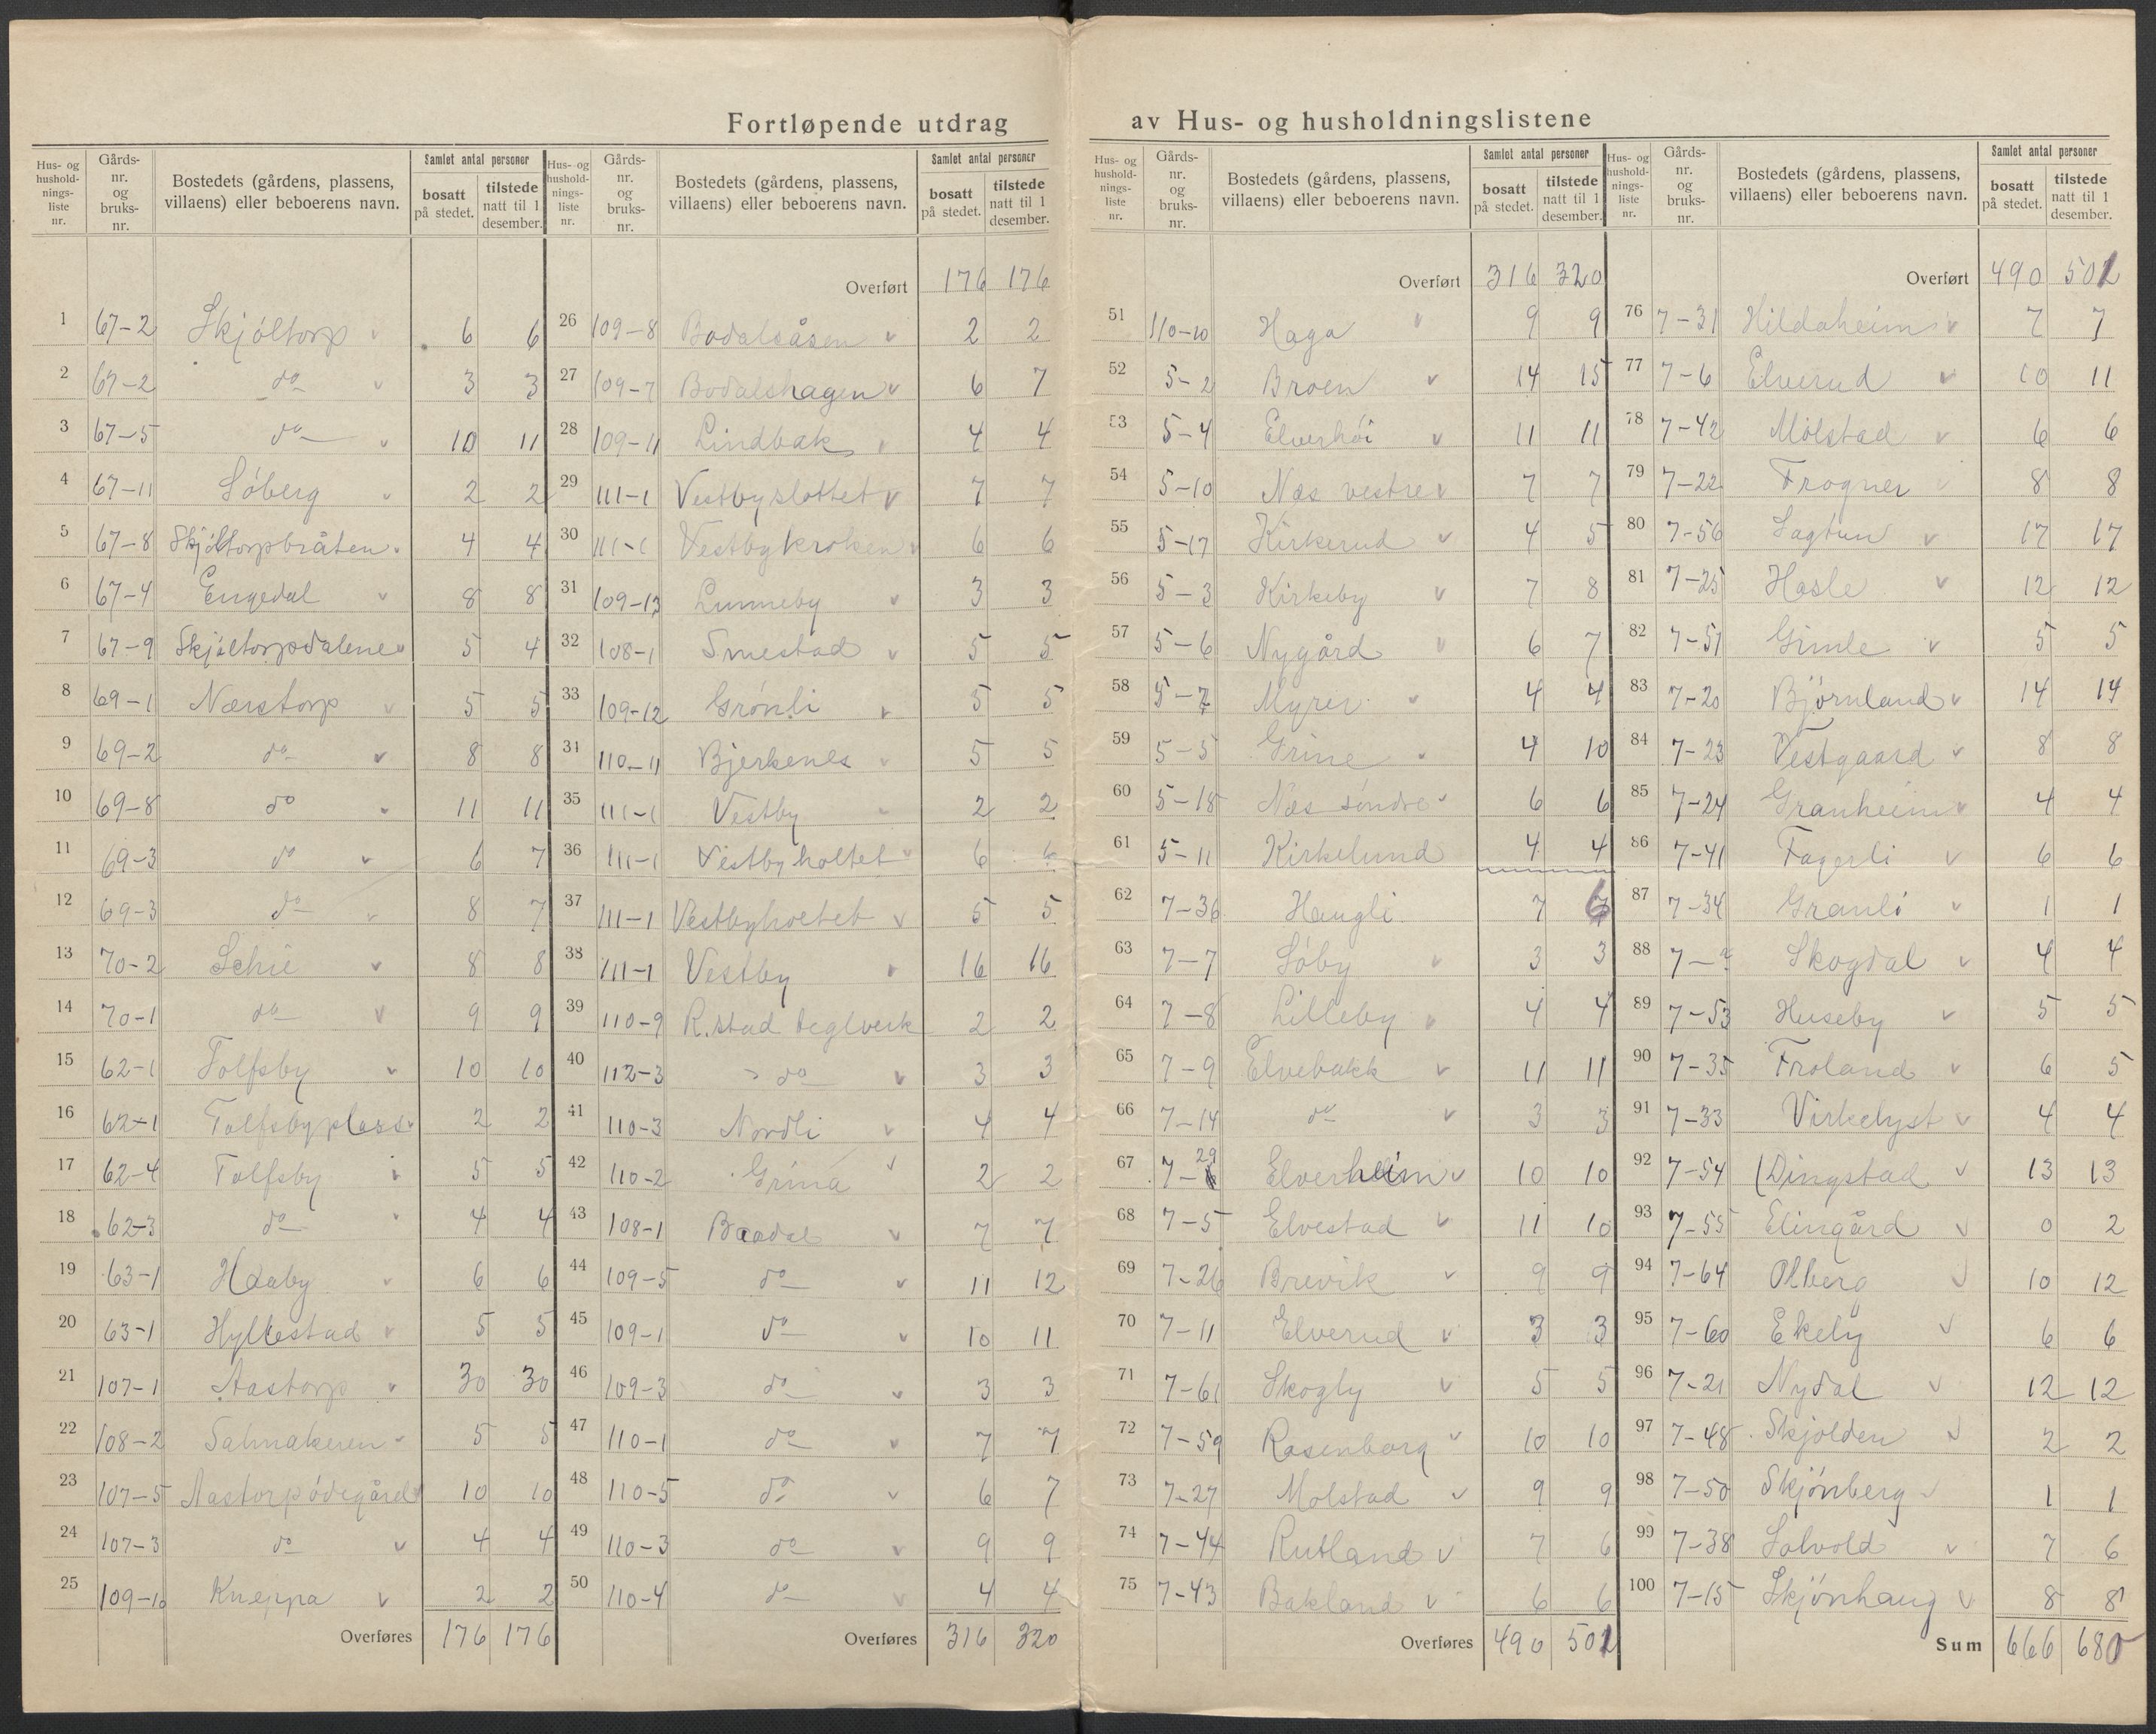 Fortløpende utdrag av Hus- og husholdningslistene
Hus- og hushold-nings-liste nr. | Gårds-nr. og bruks-nr. | Bostedets (gårdens, plassens, villaens) eller beboerens navn. | Samlet antal personer | bosatt på stedet. | tilstede natt til 1 desember.
1 67-2 Skjøltorp v 6 6
2 67-2 do v 3 3
3 67-5 do v 10 11
4 67-11 Søberg v 2 2
5 67-8 Skjøltorpbråten 4 4
6 67-4 Engedal v 8 8
7 67-9 Skjøltorpdalene 5 4
8 69-1 Nærstorp v 5 5
9 69-2 do v 8 8
10 69-8 do v 11 11
11 69-3 do v 6 7
12 69-3 do v 8 7
13 70-2 Schie v 8 8
14 70-1 do v 9 9
15 62-1 Tolfsby v 10 10
16 62-1 Tolfsbyplass 2 2
17 62-4 Tolfsby 5 5
18 62-3 do 4 4
19 63-1 Haaby v 6 6
20 63-1 Hyllestad v 5 5
21 107-1 Aastorp v 30 30
22 108-2 Salmakeren 5 5
23 107-5 Aastorpødegård 10 10
24 107-3 do v 4 4
25 109-10 Kneppa v 2 2
Overføres 176 176
Hus- og hushold-nings-liste nr. | Gårds-nr. og bruks-nr. | Bostedets (gårdens, plassens, villaens) eller beboerens navn. | Samlet antal personer | bosatt på stedet. | tilstede natt til 1 desember.
Overført 176 176
26 109-8 Bodalsåsen v 2 2
27 109-7 Bodalshagen v 6 7
28 109-11 Lindbak v 4 4
29 111-1 Vestbyslottet v 7 7
30 111-1 Vestbykroken v 6 6
31 109-13 Lunneby v 3 3
32 108-1 Smestad v 5 5
33 109-12 Grønli v 5 5
34 110-11 Bjerkenes v 5 5
35 111-1 Vestby 2 2
36 111-1 Vestbyholtet 6 6
37 111-1 Vestbyholtet v 5 5
38 111-1 Vestby v 16 16
39 110-9 R.stad teglverk 2 2
40 112-3 do v 3 3
41 110-3 Nordli v 4 4
42 110-2 Grina v 2 2
43 108-1 Baadal v 7 7
44 109-5 do v 11 12
45 109-1 do v 10 11
46 109-3 do v 3 3
47 110-1 do v 7 7
48 110-5 do v 6 7
49 110-3 do v 9 9
50 110-4 do v 4 4
Overføres 316 320
Hus- og hushold-nings-liste nr. | Gårds-nr. og bruks-nr. | Bostedets (gårdens, plassens, villaens) eller beboerens navn. | Samlet antal personer | bosatt på stedet. | tilstede natt til 1 desember.
Overført 316 320
51 110-10 Haga v 9 9
52 5-2 Broen v 14 15
53 5-4 Elverhøi v 11 11
54 5-10 Næs vestre v 7 7
55 5-17 Kirkerud v 4 5
56 5-3 Kirkeby v 7 8
57 5-6 Nygård v 6 7
58 5-7 Myrer 4 4
59 5-5 Grine 4 10
60 5-18 Næs søndre 6 6
61 5-11 Kirkelund 4 4
62 7-36 Haugli 7 6
63 7-7 Søby v 3 3
64 7-8 Lilleby v 4 4
65 7-9 Elvebakk v 11 11
66 7-14 do v 3 3
67 7-29 Elverheim v 10 10
68 7-5 Elvestad v 11 10
69 7-26 Brevik v 9 9
70 7-11 Elverud v 3 3
71 7-61 Skogly v 5 5
72 7-59 Rosenborg v 10 10
73 7-27 Molstad v 9 9
74 7-44 Rutland v 7 6
75 7-43 Bakland v 6 6
Overføres 490 501
Hus- og hushold-nings-liste nr. | Gårds-nr. og bruks-nr. | Bostedets (gårdens, plassens, villaens) eller beboerens navn. | Samlet antal personer | bosatt på stedet. | tilstede natt til 1 desember.
Overført 490 501
76 7-31 Hildaheim v 7 7
77 7-6 Elverud v 10 11
78 7-42 Mölstad v 6 6
79 7-22 Frogner v 8 8
80 7-56 Lagtun v 17 17
81 7-25 Hasle v 12 12
82 7-51 Gimle v 5 5
83 7-20 Björnland v 14 14
84 7-23 Vestgaard v 8 8
85 7-24 Granheim v 4 4
86 7-41 Fagerli v 6 6
87 7-34 Granli v 1 1
88 7- Skogdal v 4 4
89 7-53 Huseby v 5 5
90 7-35 Froland v 6 5
91 7-33 Virkelyst v 4 4
92 7-54 Dingstad v 13 13
93 7-55 Elingård v 0 2
94 7-64 Olberg v 10 12
95 7-60 Ekely v 6 6
96 7-21 Nydal v 12 12
97 7-48 Skjolden v 2 2
98 7-50 Skjønberg v 1 1
99 7-38 Solvold v 7 6
100 7-15 Skjønhaug v 8 8
Sum 666 680